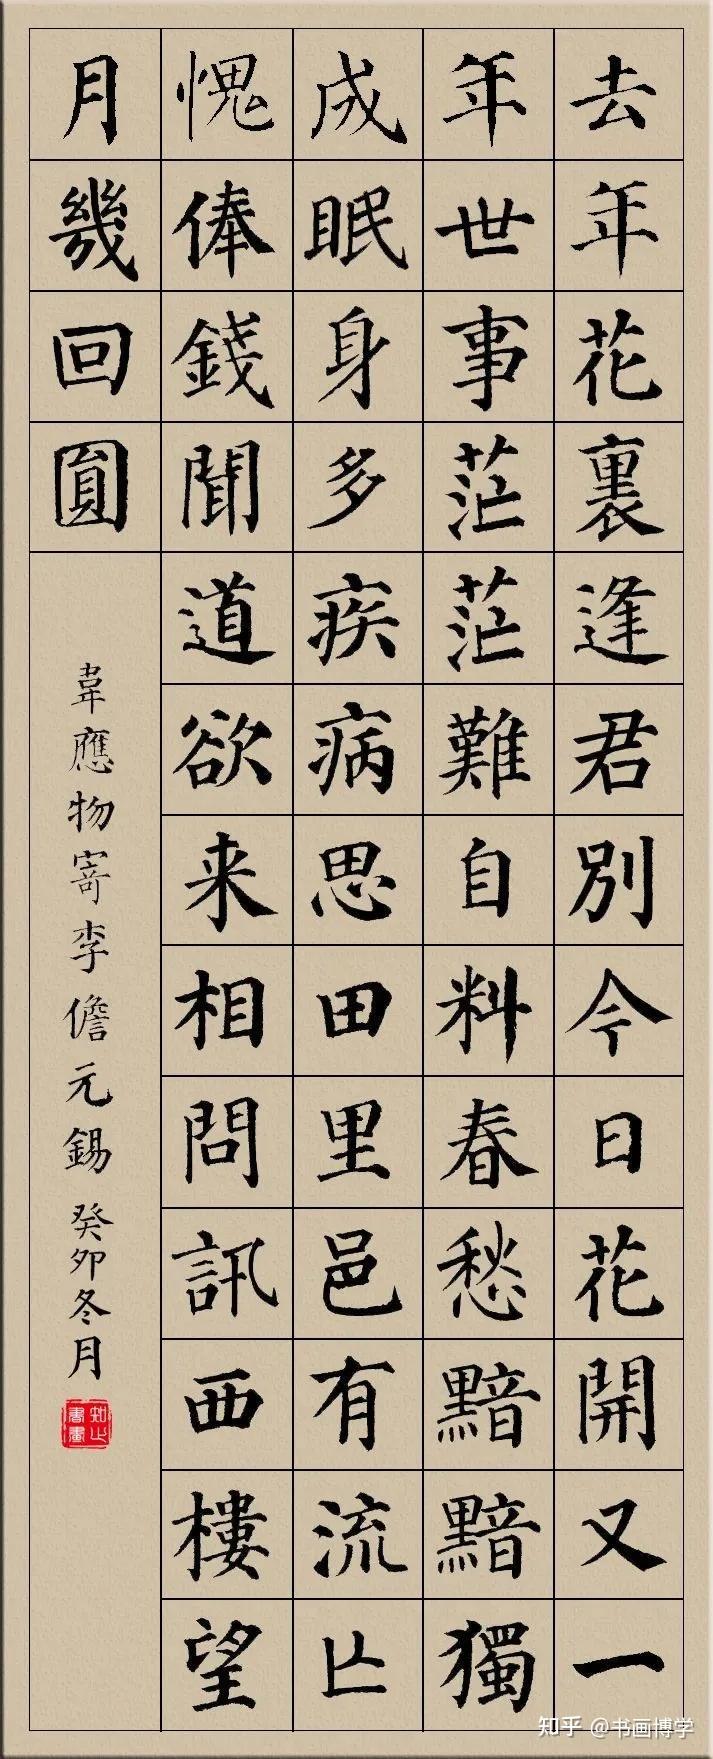 去年花裏逢君別今日花開又一
年世事茫茫難自料春愁黯黯獨
成眠身多疾病思田里邑有流亾
愧俸錢聞道欲来相問訊西樓望
月幾回圓
韋應物寄李儋元錫 癸卯冬月
知止書畫
知乎 @书画博学